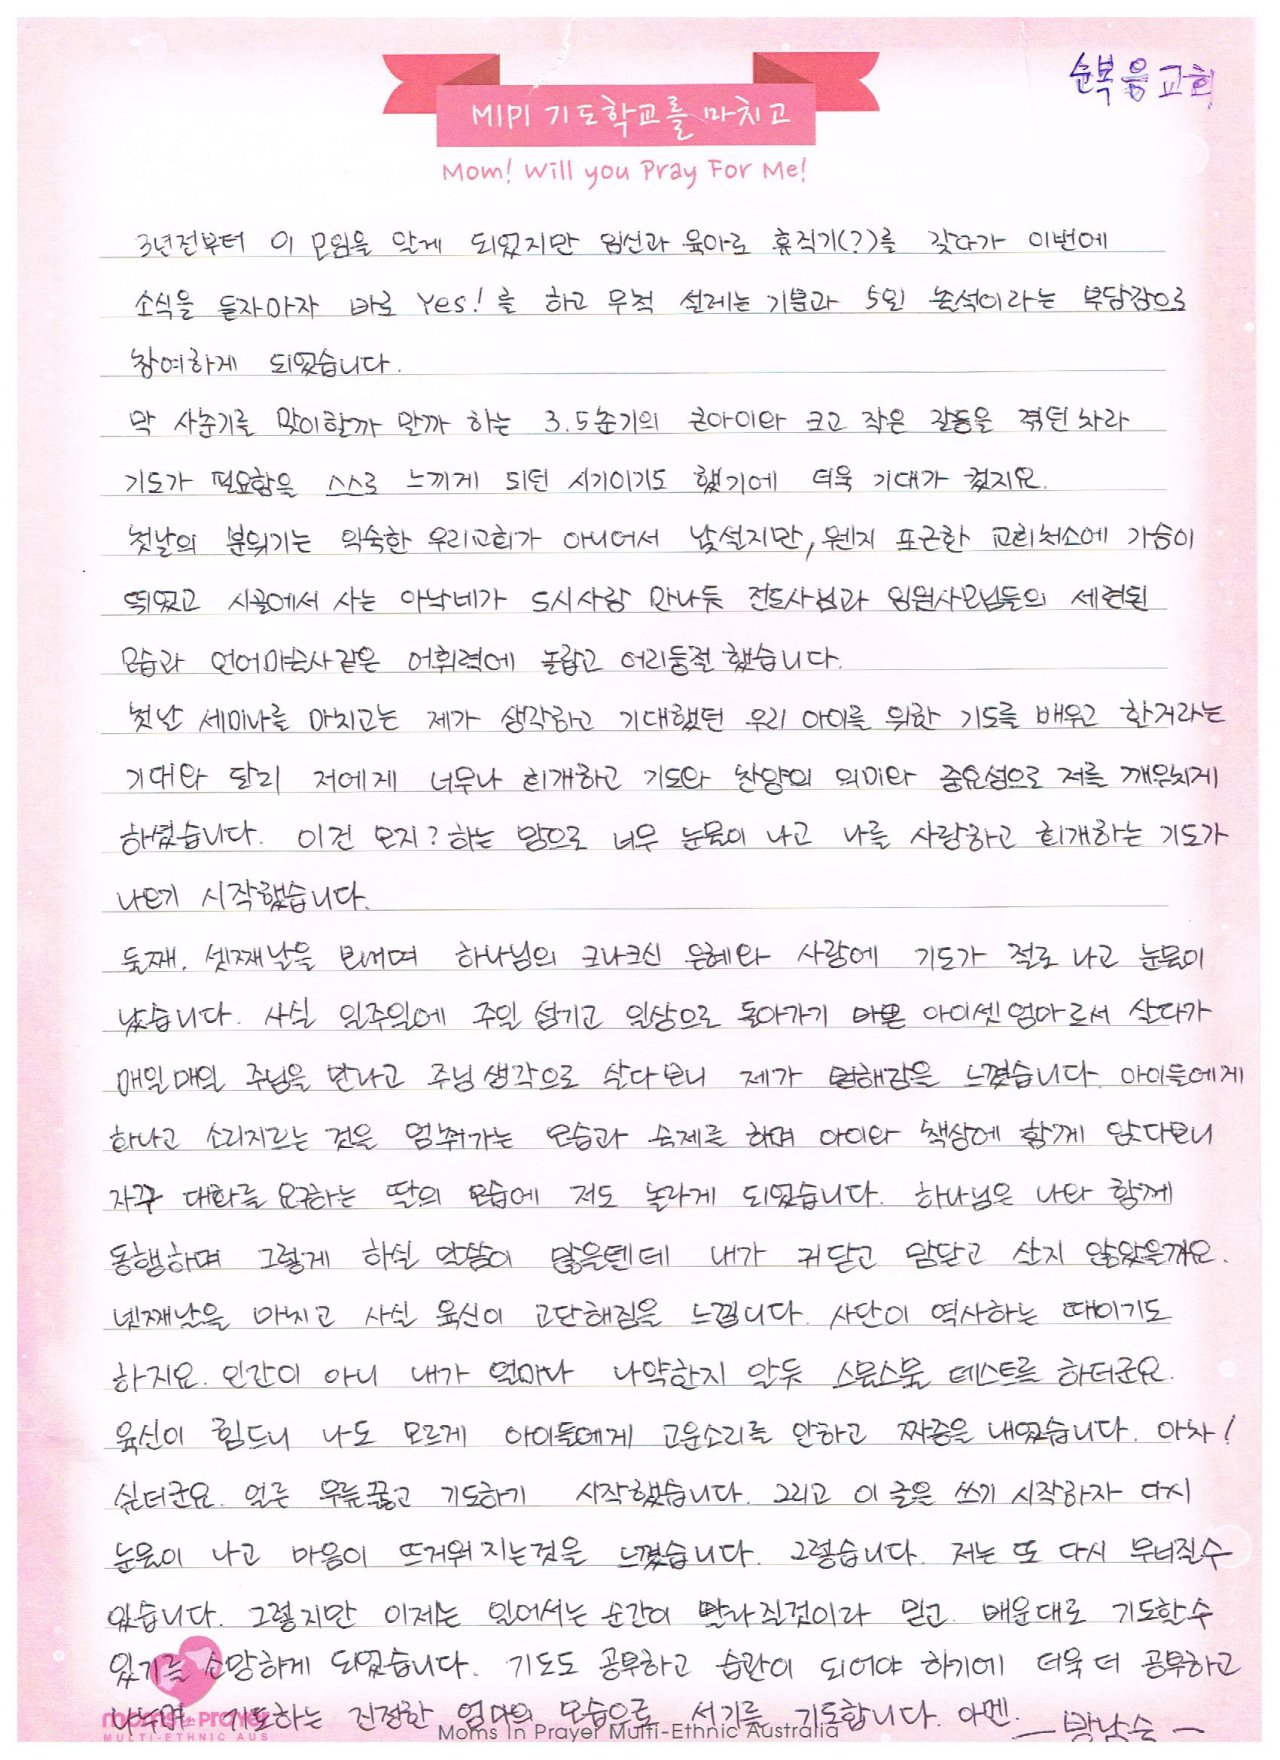 순복음교회
MIPI 기도학교를 마치고
Mom! Will you Pray For Me!
3년전부터 이 모임을 알게 되었지만 임신과 육아로 휴직기(?)를 갖다가 이번에
소식을 듣자마자 바로 Yes!를 하고 무척 설레는 기분과 5일 출석이라는 부담감으로
참여하게 되었습니다.
막 사춘기를 맞이할까 말까 하는 3.5춘기의 큰아이와 크고 작은 갈등을 겪던차라
기도가 필요함을 스스로 느끼게 되던 시기이기도 했기에 더욱 기대가 컸지요.
첫날의 분위기는 익숙한 우리교회가 아니어서 낯설지만, 웬지 포근한 교회처소에 가슴이
띄었고 시골에서 사는 아낙네가 도시사람 만나듯 전도사님과 임원사모님들의 세련된
모습과 언어마술사같은 어휘력에 놀랍고 어리둥절 했습니다.
첫날 세미나를 마치고는 제가 생각하고 기대했던 우리 아이를 위한 기도를 배우고 한거라는
기대와 달리 저에게 너무나 회개하고 기도와 찬양의 의미와 중요성으로 저를 깨우치게
하셨습니다. 이건 모지? 하는 맘으로 너무 눈물이 나고 나를 사랑하고 회개하는 기도가
나오기 시작했습니다.
둘째, 셋째날을 보내며 하나님의 크나크신 은혜와 사랑에 기도가 절로 나고 눈물이
났습니다. 사실 일주일에 주일 섬기고 일상으로 돌아가기 바쁜 아이셋엄마로서 살다가
매일매일 주님을 만나고 주님생각으로 살다보니 제가 변해감을 느꼈습니다. 아이들에게
화나고 소리지르는 것은 멈춰가는 모습과 숙제를 하며 아이와 책상에 함께 앉다보니
자꾸 대화를 요구하는 딸의 모습에 저도 놀라게 되었습니다. 하나님은 나와 함께
동행하며 그렇게 하실 말씀이 많을텐데 내가 귀닫고 맘닫고 살지 않았을까요.
넷째날을 마치고 사실 육신이 고단해짐을 느낍니다. 사단이 역사하는 때이기도
하지요. 인간이 아니 내가 얼마나 나약한지 알듯 스물스물 테스트를 하더군요.
육신이 힘드니 나도 모르게 아이들에게 고운소리를 안하고 짜증을 내었습니다. 아차!
싶더군요. 얼른 무릎꿇고 기도하기 시작했습니다. 그리고 이 글을 쓰기 시작하자 다시
눈물이 나고 마음이 뜨거워 지는것을 느꼈습니다. 그렇습니다. 저는 또 다시 무너질수
있습니다. 그렇지만 이제는 일어서는 순간이 빨라질것이라 믿고. 배운대로 기도할수
있기를 소망하게 되었습니다. 기도도 공부하고 습관이 되어야 하기에 더욱 더 공부하고
나누며 기도하는 진정한 엄마의 모습으로 서기를 기도합니다. 아멘.
moms in prayer
MULTI-ETHNIC AUS
Moms In Prayer Multi-Ethnic Australia